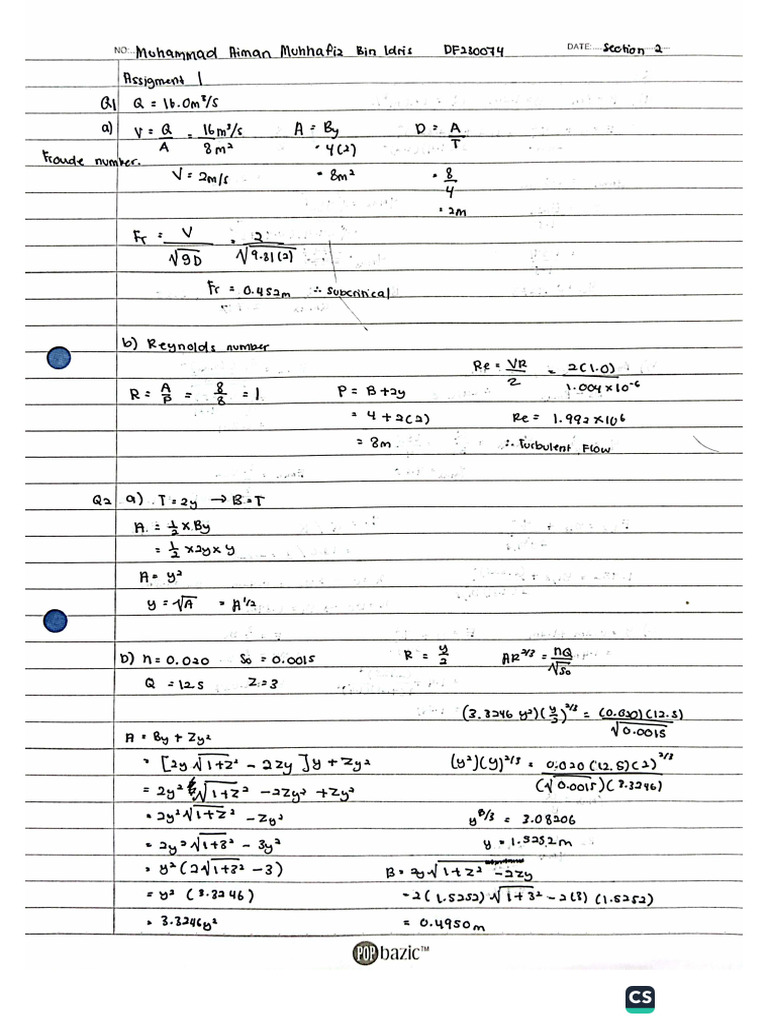 NO:... Muhammad Aiman Muhhafiz Bin Idris DF230074 DATE:.... Section 2
Assigment 1
Q1 Q = 16.0m³/s
a) V = Q/A = 16m³/s / 8m² A = By D = A/T
Froude number. = 4(2)
V = 2m/s = 8m² = 8/4
= 2m
Fr = V/√gD = 2/√9.81(2)
Fr = 0.452m ∴ subcritical
b) Reynolds number
Re = VR/2 = 2(1.0)/1.004×10⁻⁶
R = A/P = 8/8 = 1 P = B+2y
= 4+2(2) Re = 1.992×10⁶
= 8m ∴ Turbulent Flow
Q2 a) T = 2y → B=T
A = ½ × By
= ½ × 2y × y
A = y²
y = √A = A^1/2
b) n = 0.020 So = 0.0015 R = y/2 AR^2/3 = nQ/√So
Q = 12.5 Z = 3
(3.3246 y²)(y/2)^2/3 = (0.020)(12.5)/√0.0015
A = By + Zy²
= [2y√1+Z² - 2Zy]y + Zy² (y²)(y)^2/3 = 0.020(12.5)(2)^2/3 / (√0.0015)(3.3246)
= 2y²√1+Z² - 2Zy² + Zy²
= 2y²√1+Z² - Zy² y^8/3 = 3.08206
= 2y²√1+3² - 3y² y = 1.5252m
= y²(2√1+3² - 3) B = 2y√1+Z² - 2Zy
= y² (3.3246) = 2(1.5252)√1+3² - 2(3)(1.5252)
= 3.3246y² = 0.4950m
POP bazic™
CS